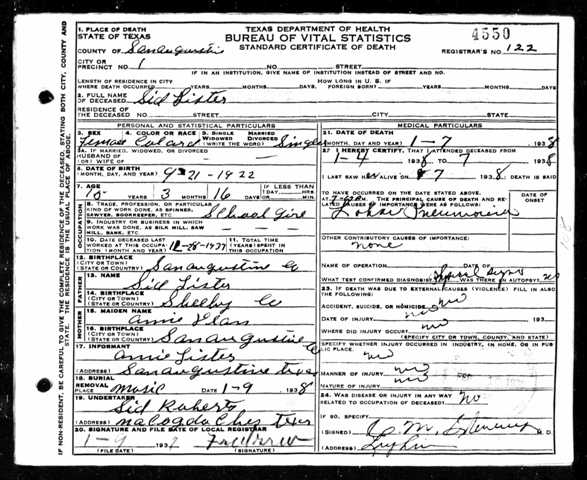 4550
1. PLACE OF DEATH
STATE OF TEXAS
TEXAS DEPARTMENT OF HEALTH
BUREAU OF VITAL STATISTICS
STANDARD CERTIFICATE OF DEATH
COUNTY OF San Augustine
REGISTRAR'S NO. 122
CITY OR
PRECINCT NO. 1 NO. STREET
IF IN AN INSTITUTION, GIVE NAME OF INSTITUTION INSTEAD OF STREET AND NO.
LENGTH OF RESIDENCE IN CITY
WHERE DEATH OCCURRED YEARS MONTHS DAYS. HOW LONG IN U. S. IF
FOREIGN BORN? YEARS MONTHS DAYS
2. FULL NAME
OF DECEASED Sid Lister
RESIDENCE OF
THE DECEASED STREET CITY STATE
PERSONAL AND STATISTICAL PARTICULARS
3. SEX 4. COLOR OR RACE 5. SINGLE MARRIED
WIDOWED DIVORCED
(WRITE THE WORD) Single
5A. IF MARRIED, WIDOWED, OR DIVORCED
HUSBAND OF
(OR) WIFE OF
6. DATE OF BIRTH
(MONTH, DAY, AND YEAR) 9-21-1922
7. AGE
YEARS 3 MONTHS 16 DAYS IF LESS THAN
1 DAY
HOURS MIN.
OCCUPATION
8. TRADE, PROFESSION, OR PARTICULAR
KIND OF WORK DONE, AS SPINNER,
SAWYER, BOOKKEEPER, ETC. School Girl
9. INDUSTRY OR BUSINESS IN WHICH
WORK WAS DONE, AS SILK MILL, SAW
MILL, BANK, ETC.
10. DATE DECEASED LAST
WORKED AT THIS OCCUPATION (MONTH AND YEAR) 1937
11. TOTAL TIME
(YEARS) SPENT IN
THIS OCCUPATION
12. BIRTHPLACE
(CITY OR TOWN)
(STATE OR COUNTRY) San Augustine Co
FATHER
13. NAME Sid Lister
14. BIRTHPLACE
(CITY OR TOWN)
(STATE OR COUNTRY) Shelby Co
MOTHER
15. MAIDEN NAME
Annie
16. BIRTHPLACE
(CITY OR TOWN)
(STATE OR COUNTRY) San Augustine Co
17. INFORMANT
Annie Lister
(ADDRESS) San Augustine Texas
18. BURIAL
REMOVAL
PLACE DATE 1-9 1938
19. UNDERTAKER
Sid Roberts
(ADDRESS) Nacogdoches Texas
20. SIGNATURE AND FILE DATE OF LOCAL REGISTRAR
1-9 193
(FILE DATE) (SIGNATURE)
MEDICAL PARTICULARS
21. DATE OF DEATH
(MONTH, DAY AND YEAR) 1-7- 1938
22. I HEREBY CERTIFY, THAT I ATTENDED DECEASED FROM
1-4 1938 TO 7 1938
I LAST SAW ALIVE ON 7 1938 DEATH IS SAID
TO HAVE OCCURRED ON THE DATE STATED ABOVE
THE PRINCIPAL CAUSE OF DEATH AND RELATED CAUSES OF IMPORTANCE
DATE OF
ONSET
Lobar Pneumonia
OTHER CONTRIBUTORY CAUSES OF IMPORTANCE:
None
NAME OF OPERATION DATE OF
WHAT TEST CONFIRMED DIAGNOSIS? WAS THERE AN AUTOPSY? no
23. IF DEATH WAS DUE TO EXTERNAL CAUSES (VIOLENCE) FILL IN ALSO
THE FOLLOWING:
ACCIDENT, SUICIDE, OR HOMICIDE no
DATE OF INJURY no
WHERE DID INJURY OCCUR? no
(SPECIFY CITY OR TOWN, COUNTY, AND STATE)
SPECIFY WHETHER INJURY OCCURRED IN INDUSTRY, IN HOME, OR IN PUBLIC PLACE.
no
MANNER OF INJURY no
NATURE OF INJURY no
24. WAS DISEASE OR INJURY IN ANY WAY
RELATED TO OCCUPATION OF DECEASED? no
IF SO, SPECIFY
(SIGNED) M. D.
(ADDRESS) Lufkin